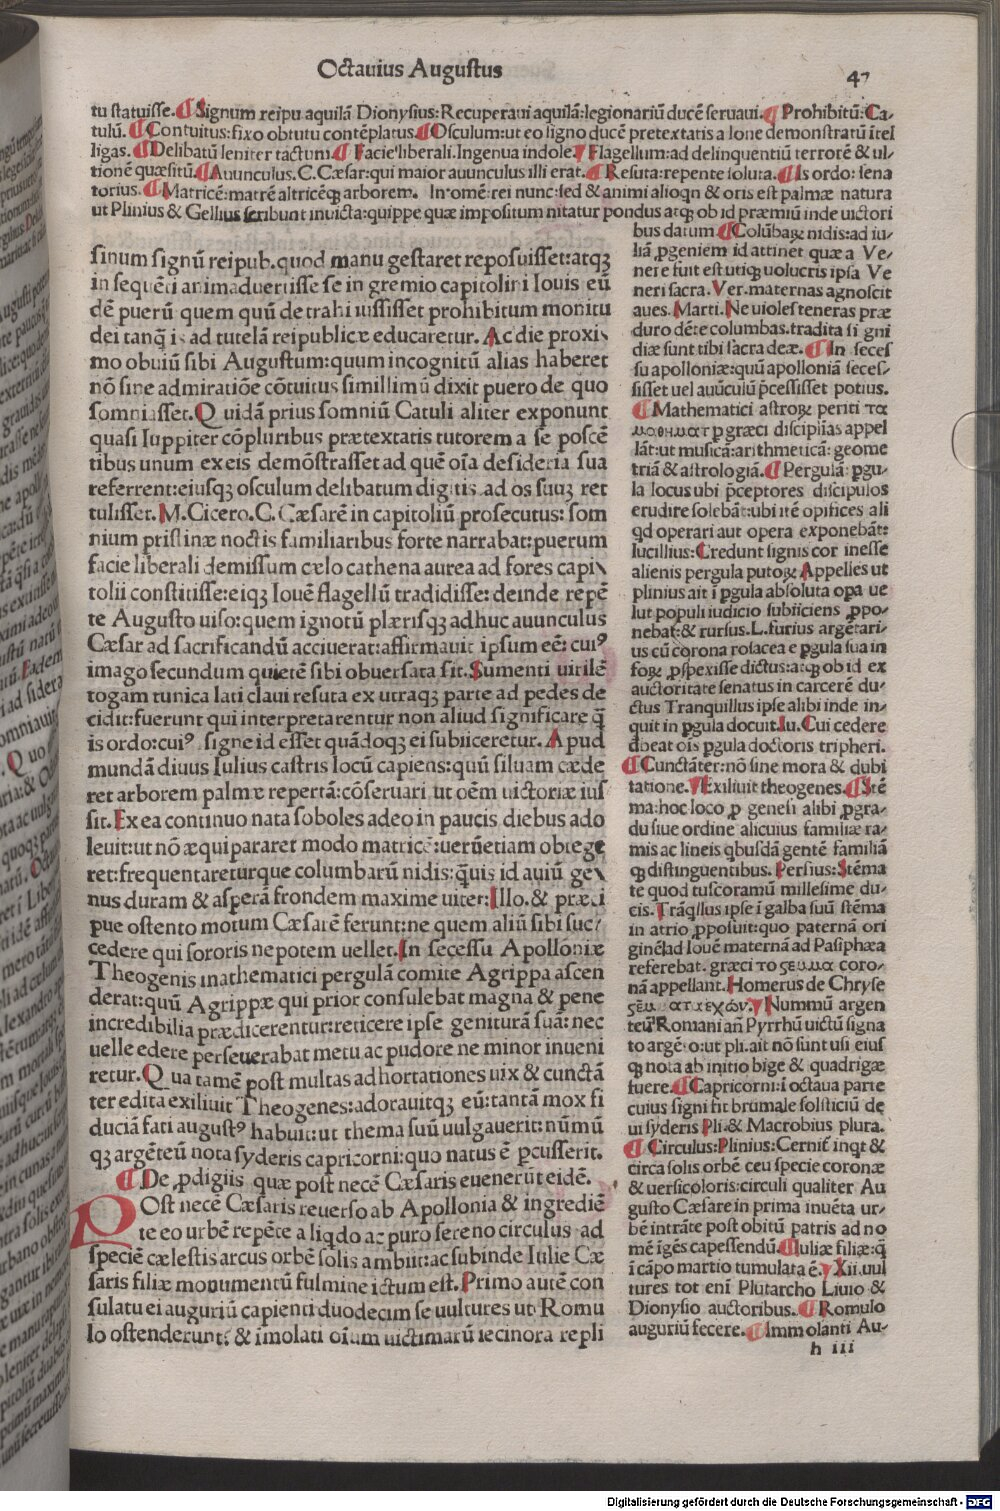 Octauius Augustus
47
tu statuisse. ¶ Signum reipu aquilā Dionysius: Recuperaui aquilā: legionariū ducē seruaui. ¶ Prohibitū: Ca-
tulū. ¶ Contuitus: fixo obtutu contēplatus. ¶ Osculum: ut eo signo ducē pretextatis a Ioue demonstratū itel
ligas. ¶ Delibatū leniter tactum. ¶ Facie liberali. Ingenua indole. ¶ Flagellum: ad delinquentiū terrorē & ul-
tionē quæsitū. ¶ Auunculus. C. Cæsar: qui maior auunculus illi erat. ¶ Resuta: repente soluta. ¶ Is ordo: sena
torius. ¶ Matricē: matrē altricēq; arborem. In omē: rei nunc: sed & animi alioqn & oris est palmæ natura
ut Plinius & Gellius scribunt inuicta: quippe quæ impositum nitatur pondus atq; ob id præmiū inde uictori
sinum signū reipub. quod manu gestaret reposuisset: atq;
in sequēti animaduertisse se in gremio capitolini Iouis eū
dē puerū quem quū detrahi iussisset prohibitum monitu
dei tanq̄ is ad tutelā reipublicæ educaretur. Ac die proxi-
mo obuiū sibi Augustum: quum incognitū alias haberet
nō sine admiratiōe cōtuitus simillimū dixit puero de quo
somniasset. Quidā prius somniū Catuli aliter exponunt
quasi Iuppiter cōpluribus prætextatis tutorem a se poscē
tibus unum ex eis demōstrasset ad quē oīa desideria sua
referrent: eiusq; osculum delibatum digitis ad os suuꝫ ret
tulisset. M. Cicero. C. Cæsarē in capitoliū prosecutus: som
nium pristinæ noctis familiaribus forte narrabat: puerum
facie liberali demissum cælo cathena aurea ad fores capi-
tolii constitisse: eiq; Iouē flagellū tradidisse: deinde repē
te Augusto uiso: quem ignotū plærisq; adhuc auunculus
Cæsar ad sacrificandū acciuerat: affirmauit ipsum eē: cuiꝰ
imago secundum quietē sibi obuersata sit. Sumenti uirilē
togam tunica lati claui resuta ex utraq; parte ad pedes de
cidit: fuerunt qui interpretarentur non aliud significare q̄
is ordo: cuiꝰ signe id esset quādoq; ei subiiceretur. Apud
mundā diuus Iulius castris locū capiens: quū siluam cæde
ret arborem palmæ repertā: cōseruari ut oēm uictoriæ ius
sit. Ex ea continuo nata soboles adeo in paucis diebus ado
leuit: ut nō æquipararet modo matricē: uerūetiam obtege
ret: frequentareturque columbarū nidis: q̄uis id auiū ge-
nus duram & asperā frondem maxime uitet: Illo. & præci
pue ostento motum Cæsarē ferunt: ne quem aliū sibi suc-
cedere qui sororis nepotem uellet. In secessu Apolloniæ
Theogenis mathematici pergulā comite Agrippa ascen
derat: quū Agrippæ qui prior consulebat magna & pene
incredibilia prædicerentur: reticere ipse genituram suā: nec
uelle edere perseuerabat metu ac pudore ne minor inueni
retur. Qua tamē post multas adhortationes uix & cunctā
ter edita exiliuit Theogenes: adorauitq; eū: tantā mox fi
duciā fati augustꝰ habuit: ut thema suū uulgauerit: nūmū
q; argēteū nota syderis capricorni: quo natus ē pcusserit.
¶ De ꝓdigiis quæ post necē Cæsaris euenerūt eidē.
POst necē Cæsaris reuerso ab Apollonia & ingrediē
te eo urbē repēte a liqdo ac puro sereno circulus ad
speciē cælestis arcus orbē solis ambiit: ac subinde Iulie Cæ
saris filiæ monumentū fulmine ictum est. Primo autē con
sulatu ei auguriū capienti duodecim se uultures ut Romu
lo ostenderunt: & imolati oium uictimarū iecinora repli
bus datum. ¶ Colūbaꝝ nidis: ad iu-
liā ꝓgeniem id attinet quæ a Ve-
nere fuit est utiq; uolucris ipsa Ve
neri sacra. Ver. maternas agnoscit
aues. Marti. Ne uioles teneras præ
duro dēte columbas. tradita si gni
diæ sunt tibi sacra deæ. ¶ In seces
su apolloniæ: quū apolloniā seces-
sisset uel auūculū p̄cessisset potius.
¶ Mathematici astroꝝ periti τα
μαθηματ p græci disciplias appel
lāt: ut musicā: arithmeticā: geome
triā & astrologiā. ¶ Pergulā: pgu-
la locus ubi p̄ceptores discipulos
erudire solebāt: ubi itē opifices ali
qd operari aut opera exponebāt:
lucillius: Credunt signis cor inesse
alienis pergula putoꝝ Appelles ut
plinius ait i pgula absoluta opa ue
lut populi iudicio subiiciens ꝓpo-
nebat: & rursus. L. furius argētari-
us cū corona rosacea e pgula sua in
foꝝ ꝓspexisse dictus: atq; ob id ex
auctoritate senatus in carcerē du-
ctus Tranquillus ipse alibi inde in-
quit in pgula docuit. Iu. Cui cedere
dbeat ois pgula doctoris tripheri.
¶ Cunctāter: nō sine mora & dubi
tatione. ¶ Exiliuit theogenes. ¶ Stē
ma: hoc loco ꝓ genesi alibi ꝓgra-
du siue ordine alicuius familiæ ra-
mis ac lineis qbusdā gentē familiā
q; distinguentibus. Persius: Stēma
te quod tuscoramū millesime du-
cis. Trāqllus ipse i galba suū stēma
in atrio ꝓposuit: quo paternā ori
ginē ad Iouē maternā ad Pasiphæa
referebat. græci το ςεμμα coro-
nā appellant. Homerus de Chryse
ςεμματ εχων. ¶ Nummū argen
teū Romani añ Pyrrhū uictū signa
to argēto: ut pli. ait nō sunt usi eius
q; nota ab initio bige & quadrigæ
fuere. ¶ Capricorni: i octaua parte
cuius signi fit brumale solsticiū de
ui syderis Pli. & Macrobius plura.
¶ Circulus: Plinius: Cernit inqt &
circa solis orbē ceu specie coronæ
& uersicoloris: circuli qualiter Au
gusto Cæsare in prima inuēta ur-
bē intrāte post obitū patris ad no
mē igēs capessendū. ¶ Iuliæ filiæ: q̄
i cāpo martio tumulata ē. ¶ Xii. uul
tures tot eni Plutarcho Liuio &
Dionysio auctoribus. ¶ Romulo
auguriū fecere. ¶ Immolanti Au-
h iii
Digitalisierung gefördert durch die Deutsche Forschungsgemeinschaft - DFG